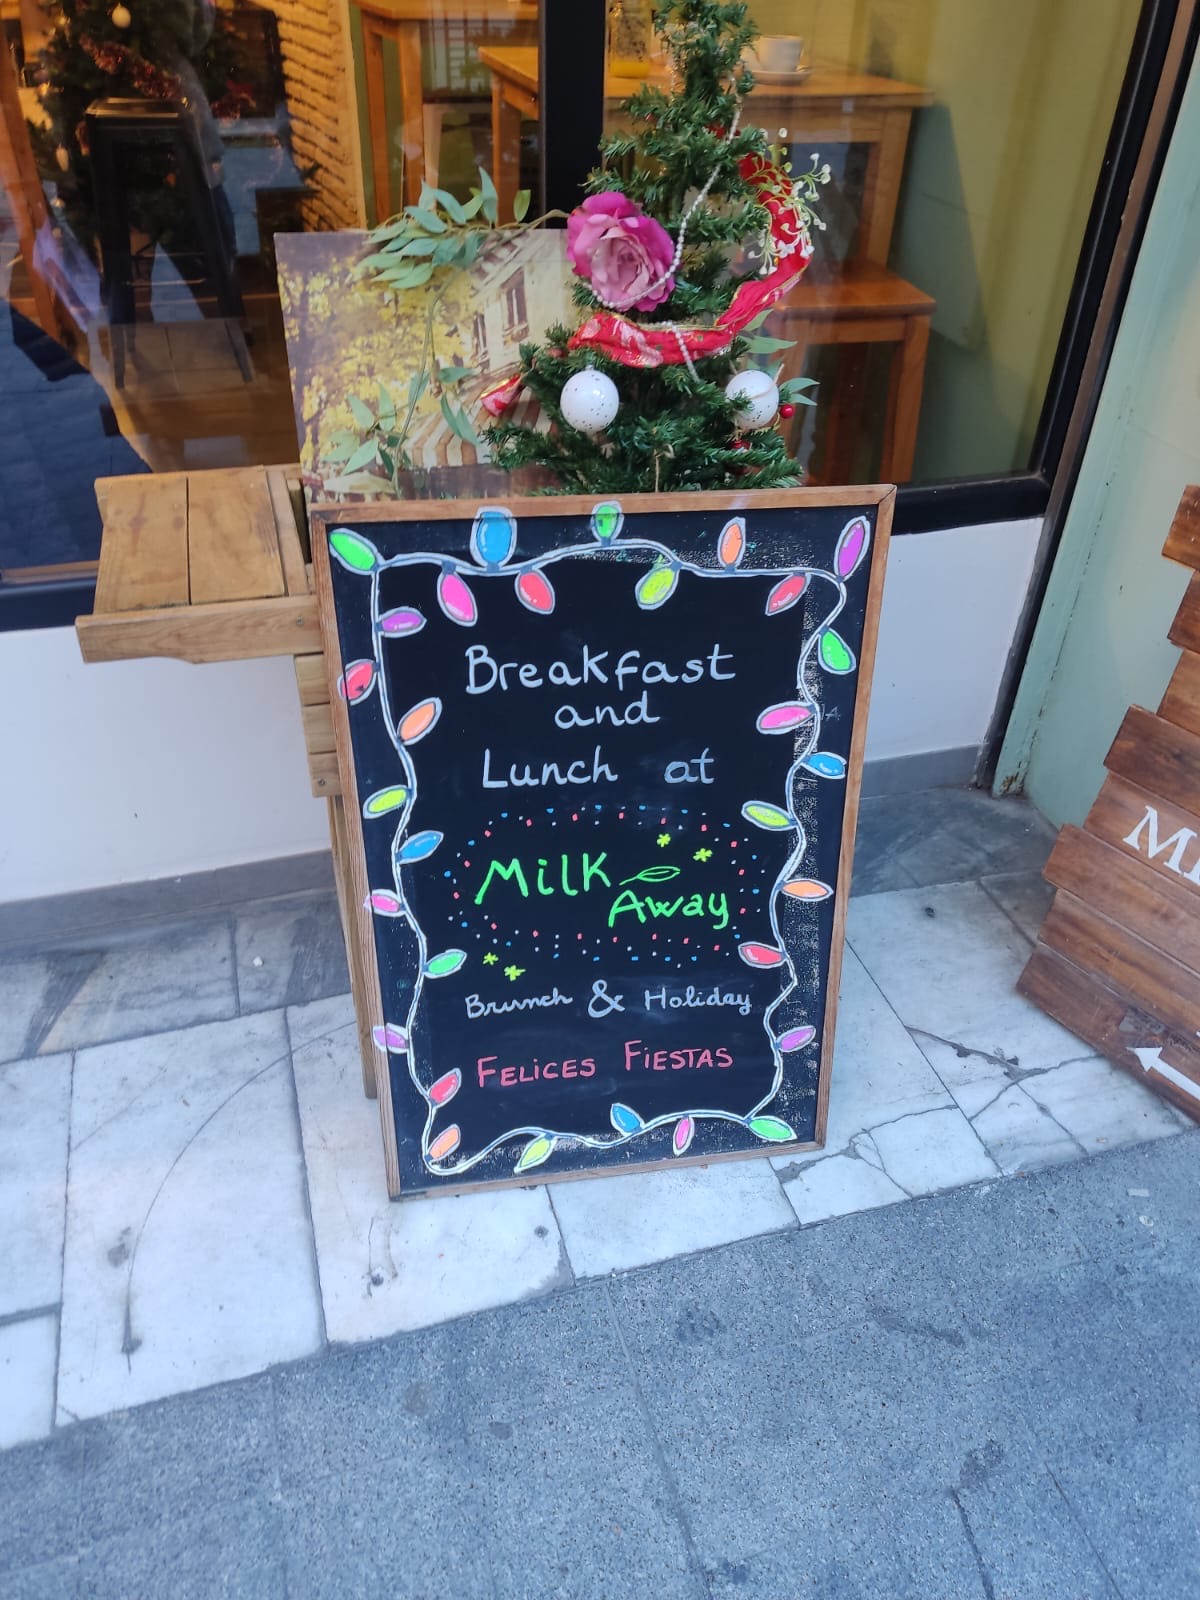 Breakfast
and
Lunch at
Milk
Away
Brunch & Holiday
FELiCES FiESTAS